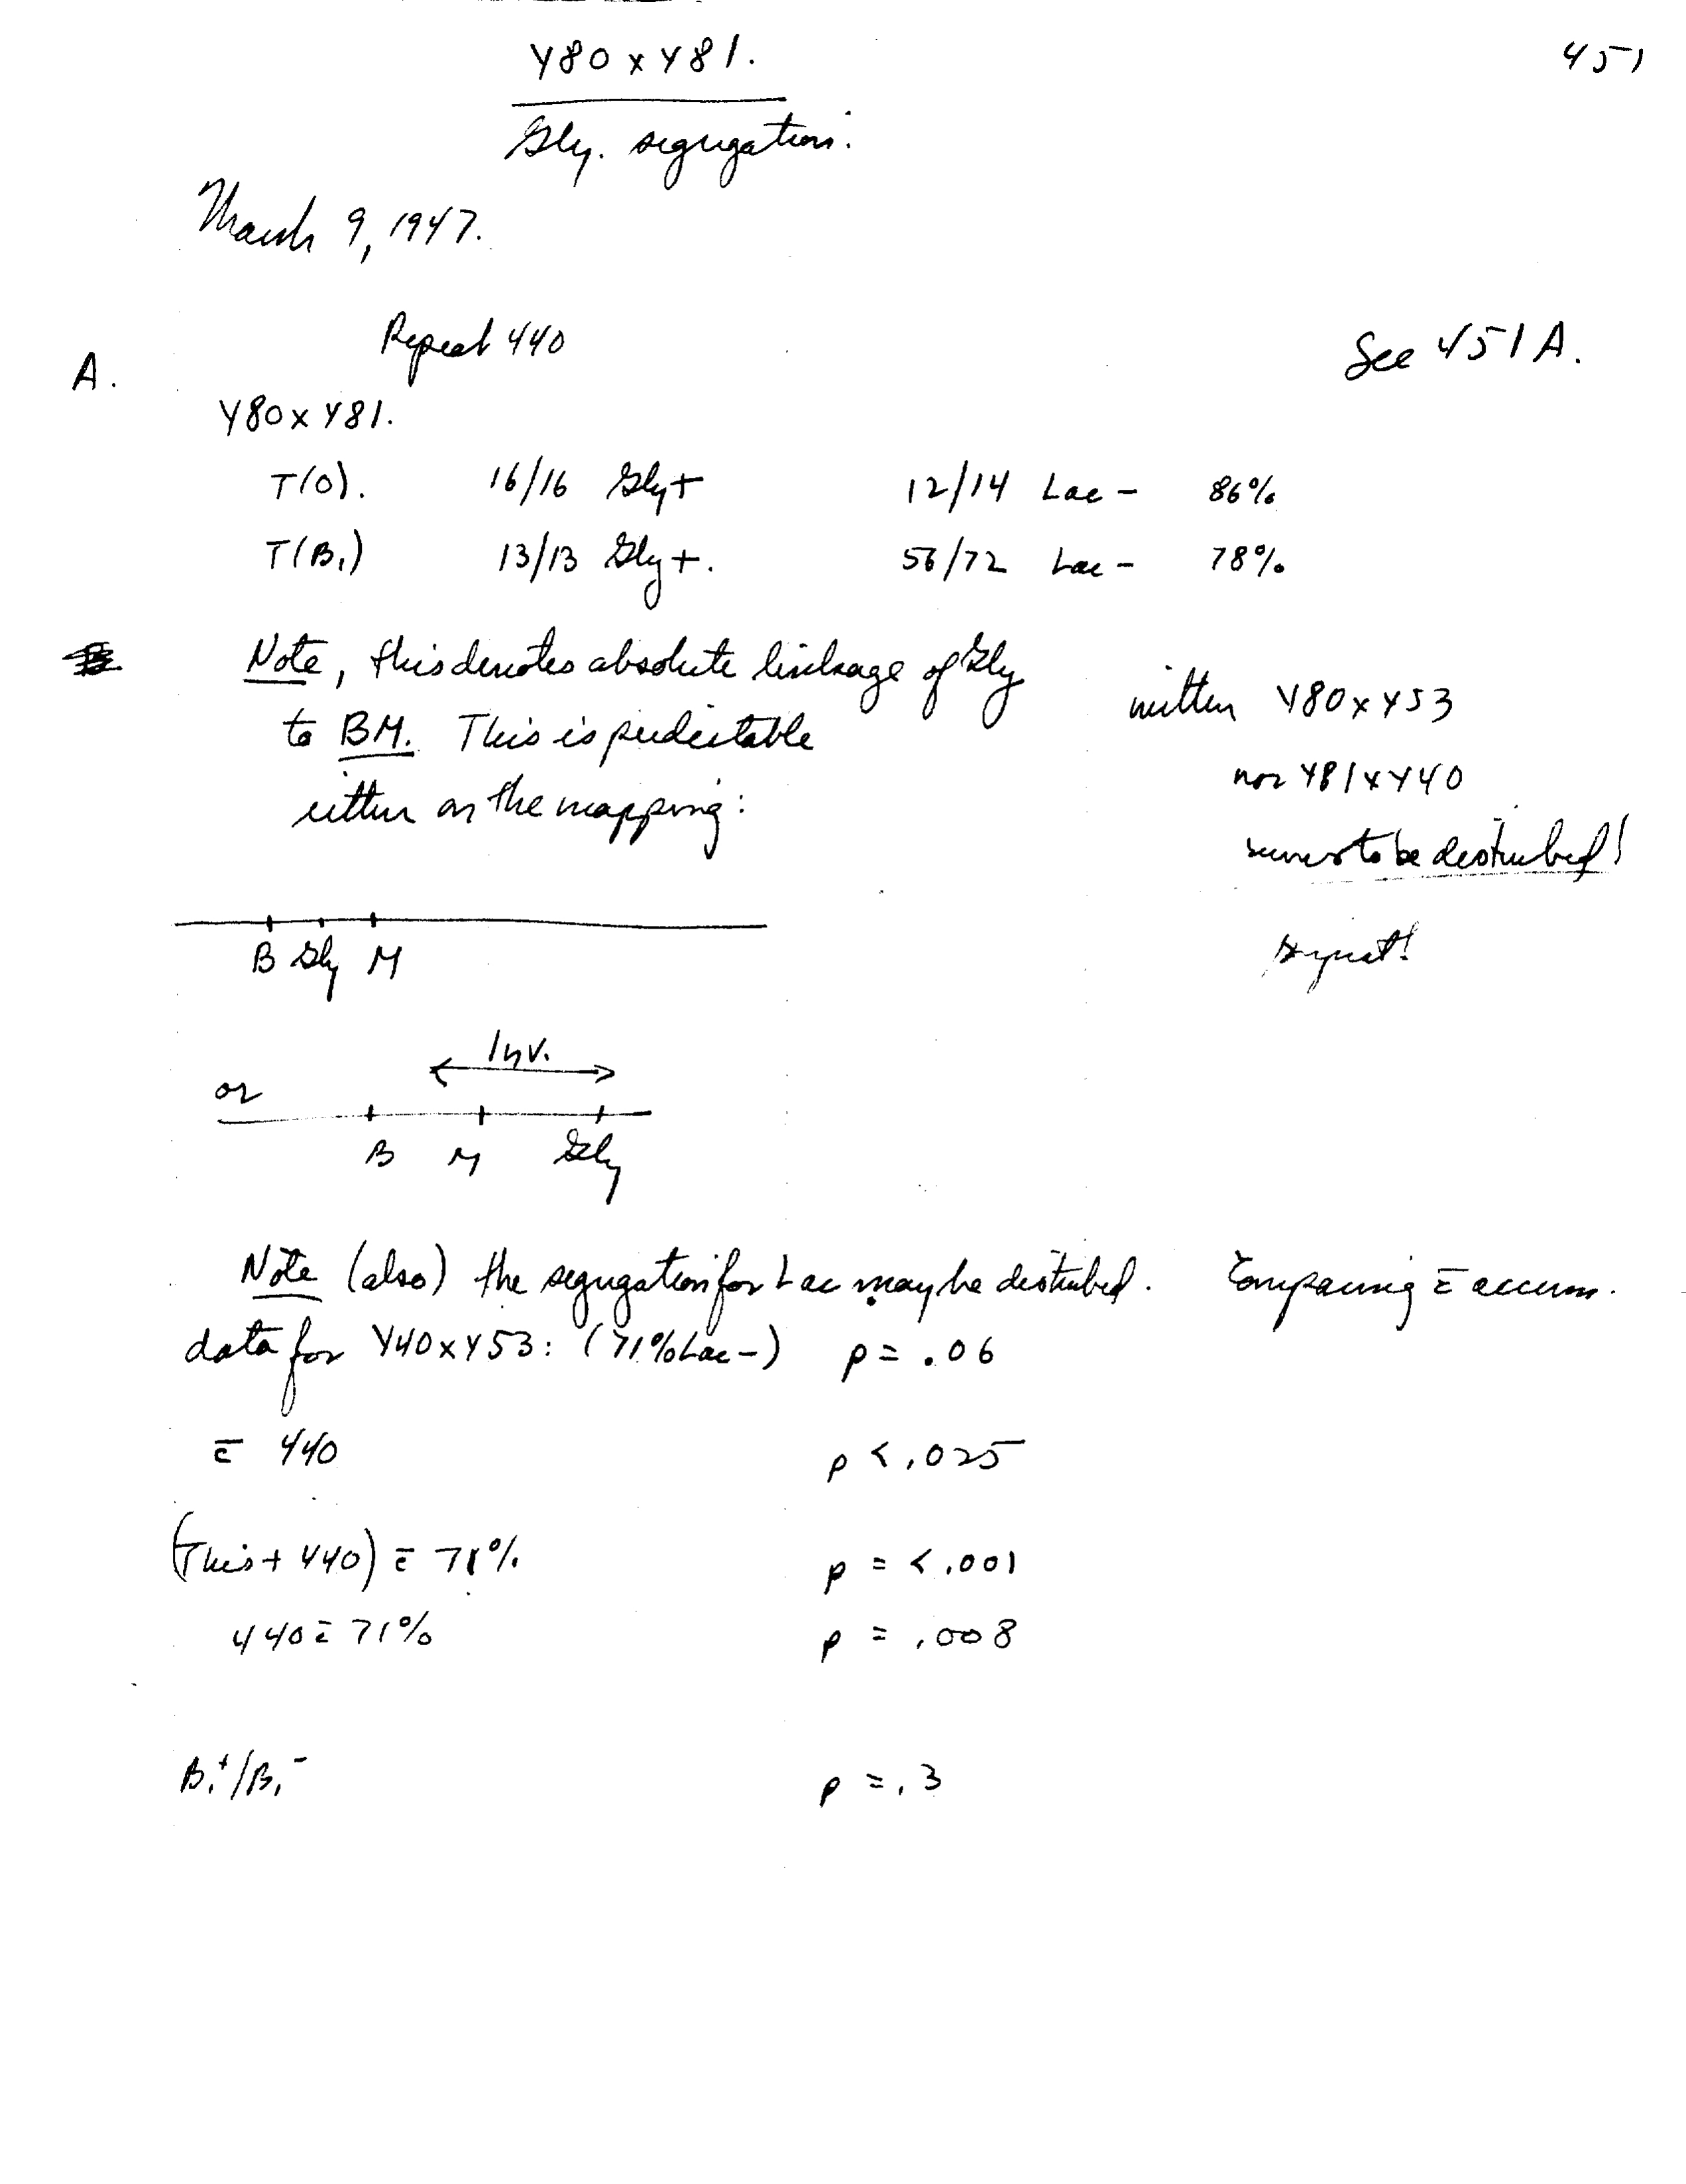 451
Y80 x Y81.
Gly. segregation.
March 9, 1947.
Repeat 440
See 451A.
A.
Y80 x Y81.
T(O). 16/16 Gly+ 12/14 Lac- 86%
T(B₁) 13/13 Gly+. 56/72 Lac- 78%
Note, this denotes absolute linkage of Gly
to BM. This is predictable
either on the mapping:
neither Y80 x Y53
nor Y81 x Y40
seems to be disturbed!
repeat!
B Gly M
Inv.
or
B M Gly
Note (also) the segregation for Lac may be disturbed. Comparing c̄ accum.
data for Y40 x Y53: (71% Lac-) p = .06
c̄ 440 p < .025
(This + 440) c̄ 71% p = < .001
440 c̄ 71% p = .008
B₁⁺/B₁⁻ p = .3